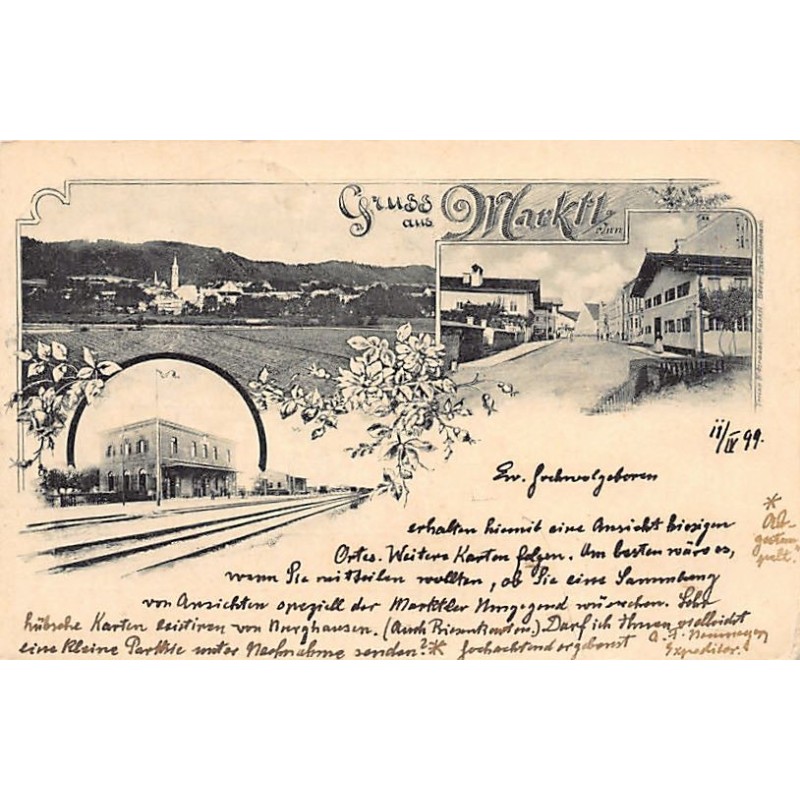 Gruss
aus
Marktl
a/Inn
11/IV 99.
Ew. Hochwolgeboren
erhalten hiemit eine Ansicht hiesigen
Ortes. Weitere Karten folgen. Am besten wäre es,
wenn Sie mitteilen wollten, ob Sie eine Sammlung
von Ansichten speziell der Marktler Umgegend wünschen. Sehr
hübsche Karten existiren von Burghausen. (Auch Riesenkarten.) Darf ich Ihnen vielleicht
eine kleine Parthie unter Nachnahme senden? * Hochachtend ergebenst
Expeditor.
* Ab-
gestem-
pelt?